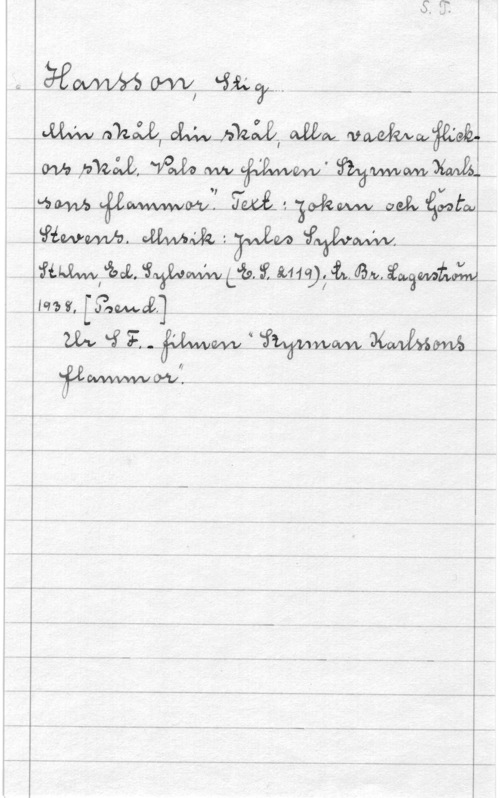 S. T.
Hansson, Stig
Min skål, din skål, alla vackra flick-
ors skål. Vals ur filmen "Styrman Karls-
sons flammor". Text: Jokern och Gösta
Stevens. Musik: Jules Sylvain.
Sthlm, Ed. Sylvain (E. S. 2119); tr. Br. Lagerström
1938. [Pseud.]
Ur S F.-filmen "Styrman Karlssons
flammor".